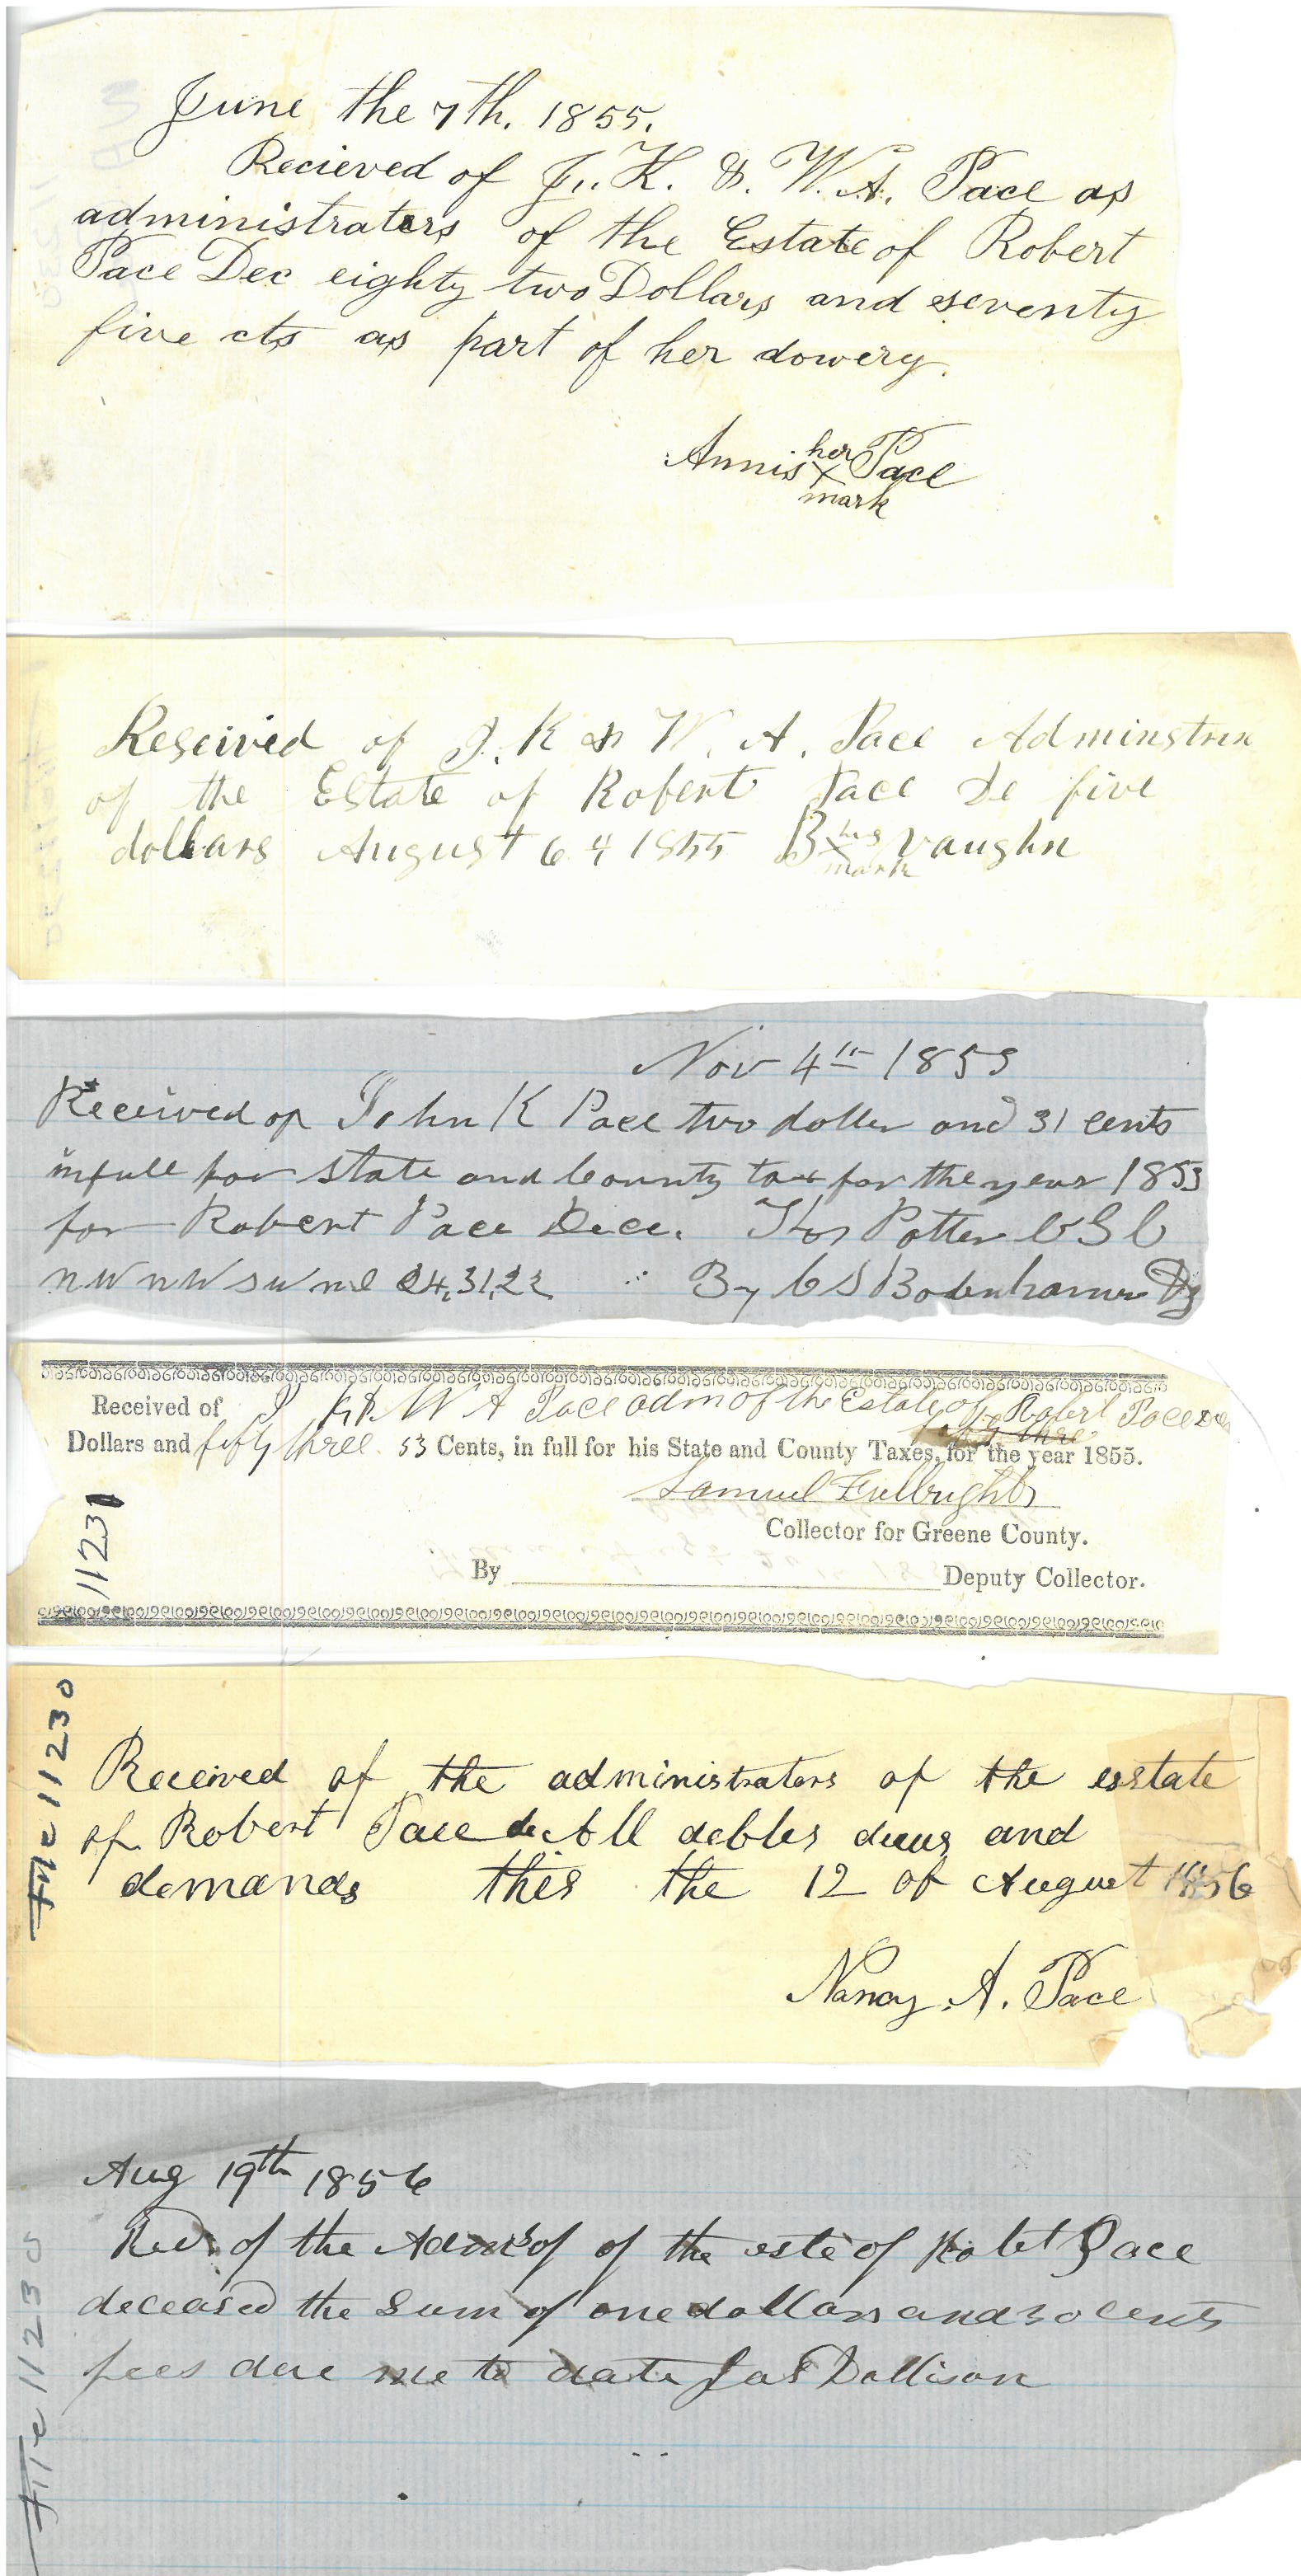 June the 7th. 1855.
Recieved of J. K. & W. A. Pace as
administrators of the Estate of Robert
Pace Dec eighty two Dollars and seventy
five cts as part of her dowery.
Annis her x mark Pace
Reseived of J. K & W. A. Pace Adminstrer
of the Estate of Robert Pace De five
dollars August 6 1855 B his x mark vaughn
Nov 4th 1853
Received of John K Pace two doller and 31 cents
in full for state and County tax for the year 1853
for Robert Pace Dece. Thos Potter C G C
nW nW sW ne 24,31,22 By C S Bodenhamer Dy
Received of J K & W A Pace adm of the Estate of Robert Pace De
Dollars and fifty three 53 Cents, in full for his State and County Taxes, for the year 1855.
Samuel Fulbright
Collector for Greene County.
By Deputy Collector.
11231
File 11230
Received of the administrators of the esstate
of Robert Pace de All debtes dues and
demands this the 12 of August 1856
Nancy A. Pace
Aug 19th 1856
Recd of the of the este of Robet Pace
deceased the Sum of one dollars and 30 cents
fees due me to date Jas Dollison
File 11230